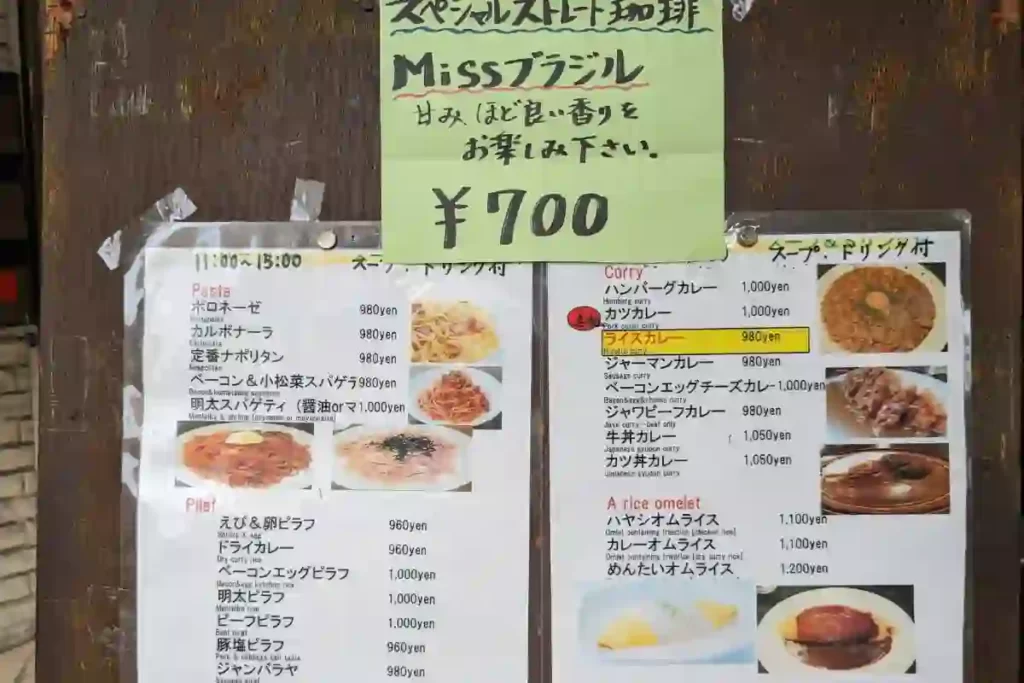 スペシャルストレート珈琲
Missブラジル
甘み、ほど良い香りを
お楽しみ下さい。
¥700
11:00~15:00 スープ・ドリンク付
Pasta
ボロネーゼ 980yen
カルボナーラ 980yen
定番ナポリタン 980yen
Neapolitan
ベーコン&小松菜スパゲテ 980yen
明太スパゲティ (醤油orマ 1,000yen
Pilaf
えび&卵ピラフ 960yen
Shrimp & egg
ドライカレー 960yen
Dry curry rice
ベーコンエッグピラフ 1,000yen
明太ピラフ 1,000yen
Mentaiko rice
ビーフピラフ 1,000yen
Beef pilaf
豚塩ピラフ 960yen
ジャンバラヤ 980yen
スープ・ドリンク付
Curry
ハンバーグカレー 1,000yen
Hamberg curry
カツカレー 1,000yen
Pork cutlet curry
ライスカレー 980yen
ジャーマンカレー 980yen
Sausage curry
ベーコンエッグチーズカレー 1,000yen
Bacon&egg&cheese curry
ジャワビーフカレー 980yen
Java curry-beef only
牛丼カレー 1,050yen
Japanese gyudon curry
カツ丼カレー 1,050yen
A rice omelet
ハヤシオムライス 1,100yen
カレーオムライス 1,100yen
めんたいオムライス 1,200yen